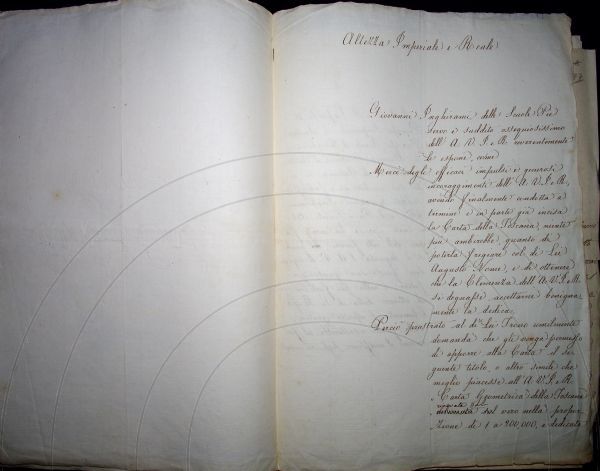 Altezza Imperiale e Reale
Giovanni Inghirami delle Scuole Pie
servo e suddito ossequiosissimo
dell' A. V. I. e R. reverentemente
Le espone, come
Mercè degli efficaci impulsi e generosi
incoraggimenti dell' A. V. I. e R.
avendo finalmente condotta a
termine e in parte già incisa
la Carta della Toscana, niente
più ambirebbe, quanto di
poterla fregiare col di Lei
Augusto Nome, e di ottenere
che la Clemenza dell' A. V. I. e R.
si degnasse accettarne benigna-
mente la dedica.
Perciò prostrato al di Lei Trono umilmente
domanda che gli venga permesso
di apporre alla Carta il se-
guente titolo, o altro simile che
meglio piacesse all' A. V. I. e R.
Carta Geometrica della Toscana
ricavata dal
vero nella propor-
zione di 1 a 200,000, e dedicata